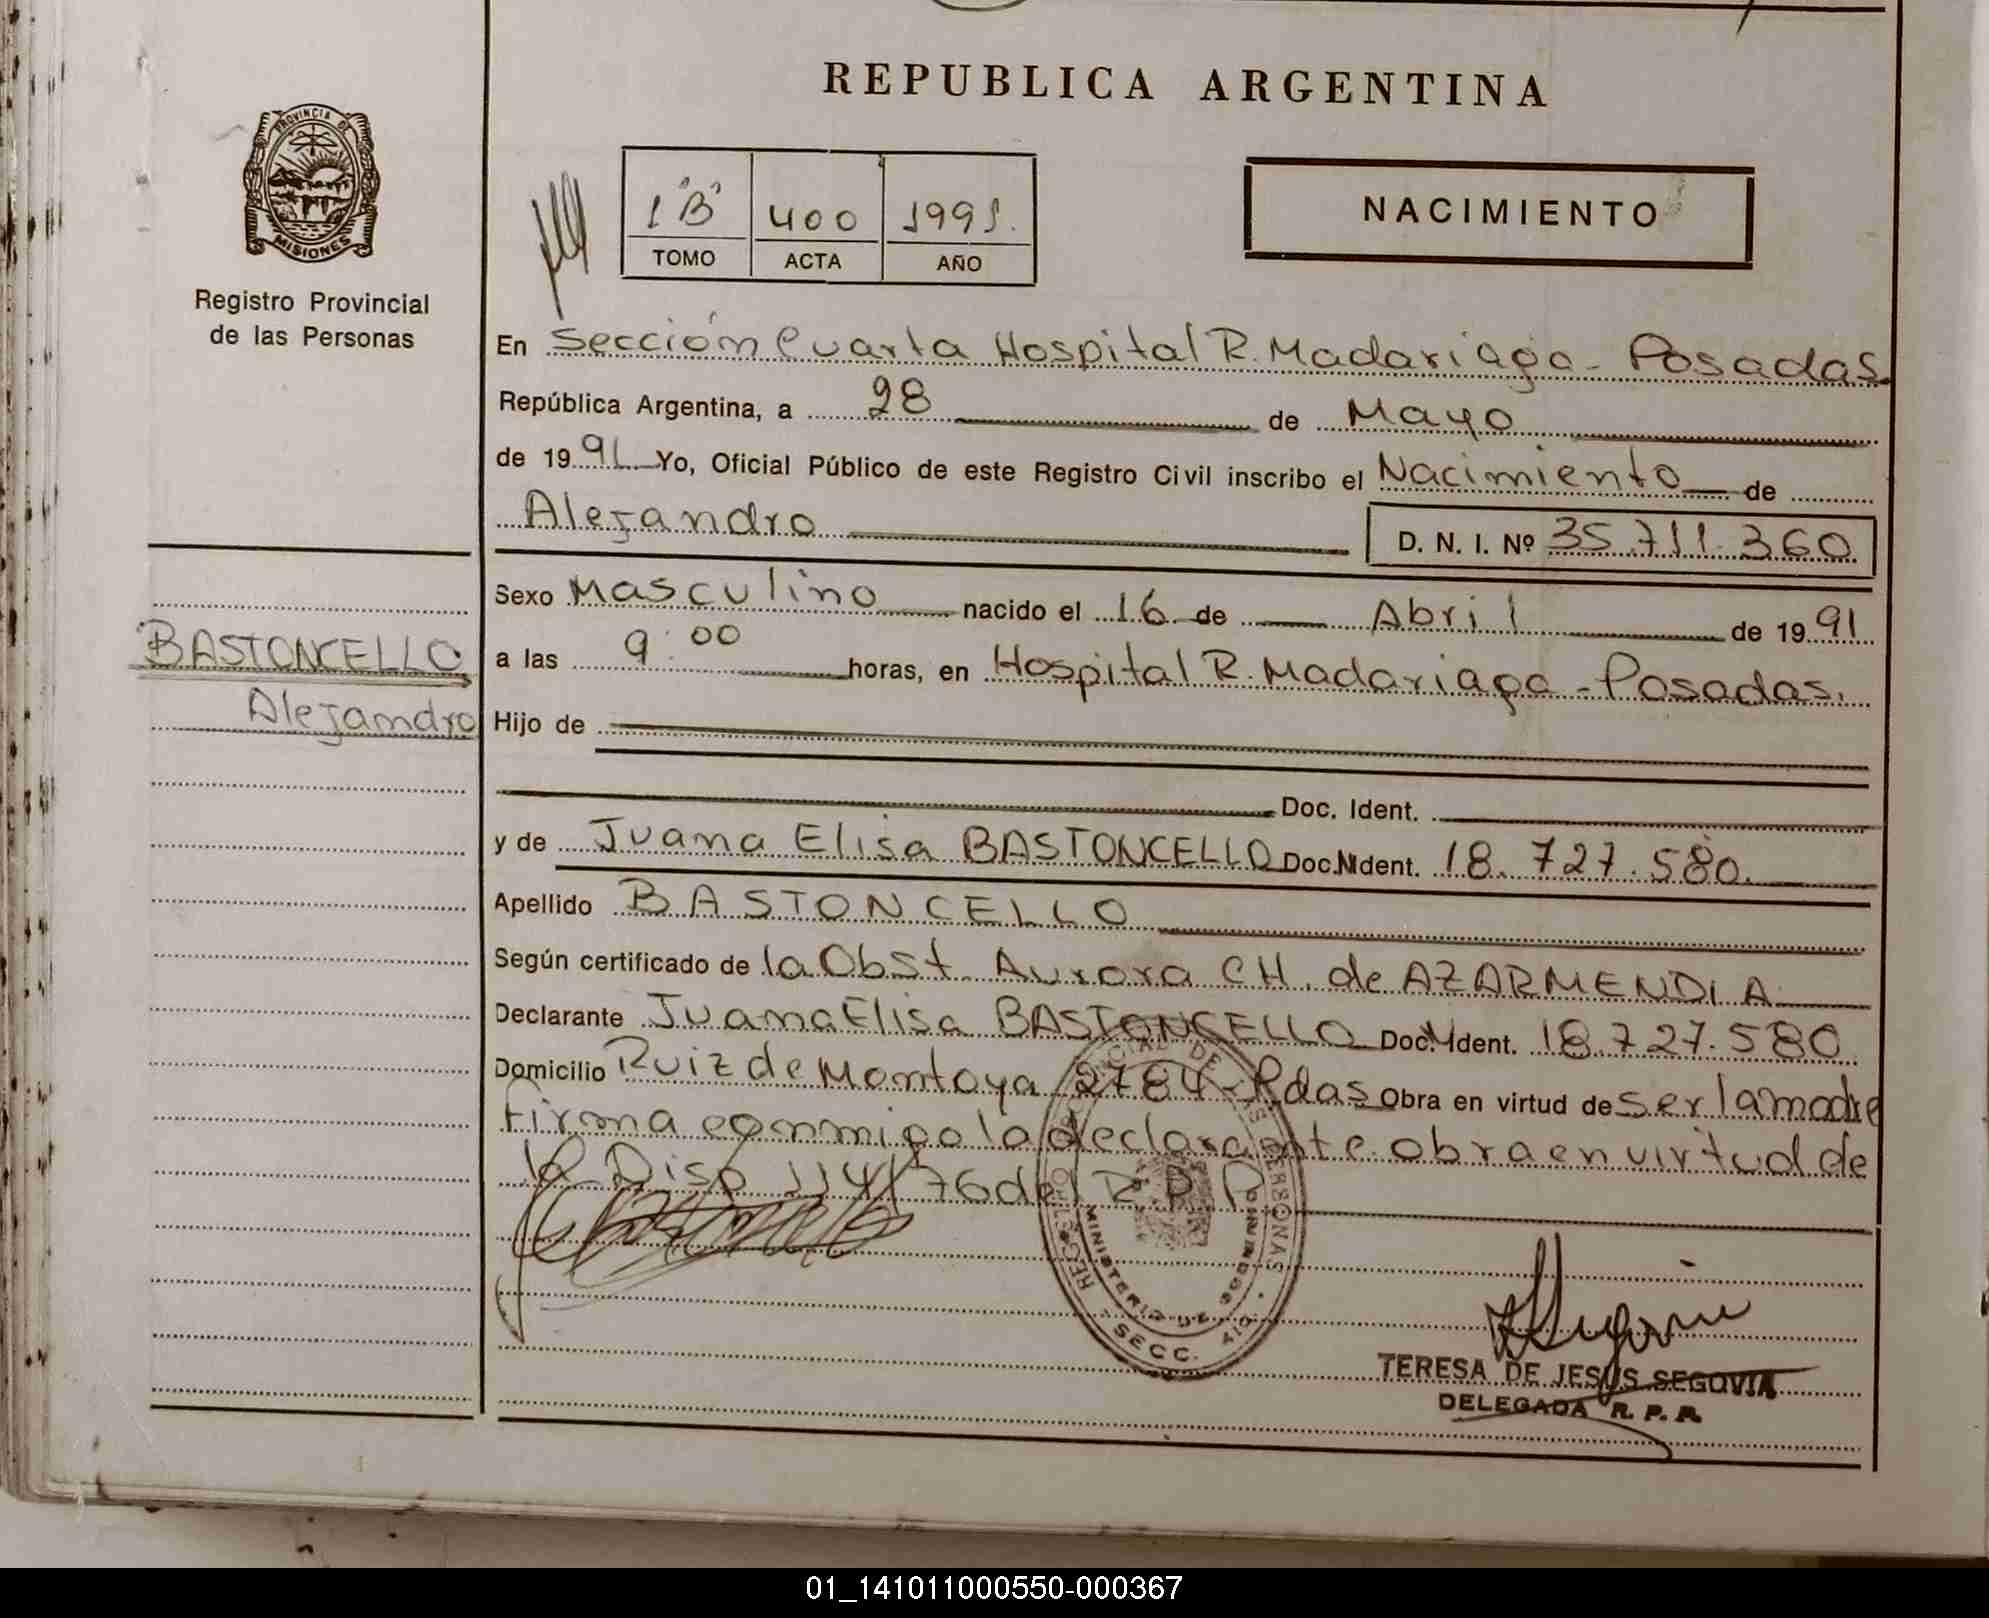 REPUBLICA ARGENTINA
PROVINCIA DE
MISIONES
Registro Provincial
de las Personas
1 "B" 400 1991.
TOMO ACTA AÑO
NACIMIENTO
En Sección Cuarta Hospital R. Madariaga - Posadas
República Argentina, a 28 de Mayo
de 1991 Yo, Oficial Público de este Registro Civil inscribo el Nacimiento de
Alejandro
D. N. I. Nº 35.711.360
Sexo Masculino nacido el 16 de Abril de 1991
a las 9:00 horas, en Hospital R. Madariaga - Posadas.
BASTONCELLO
Alejandro
Hijo de
Doc. Ident.
y de Juana Elisa BASTONCELLO Doc. Ident. 18.727.580.
Apellido BASTONCELLO
Según certificado de la Obst. Aurora CH. de AZARMENDIA
Declarante Juana Elisa BASTONCELLO Doc. Ident. 18.727.580
Domicilio Ruiz de Montoya 2784 - Pdas Obra en virtud de ser la madre
Firma conmigo la declarante obra en virtud de
la Disp 114/76 del R.P.P.
REGISTRO PROVINCIAL DE LAS PERSONAS
MINISTERIO DE GOBIERNO
SECC. 4ta.
TERESA DE JESUS SEGOVIA
DELEGADA R. P. P.
01_141011000550-000367